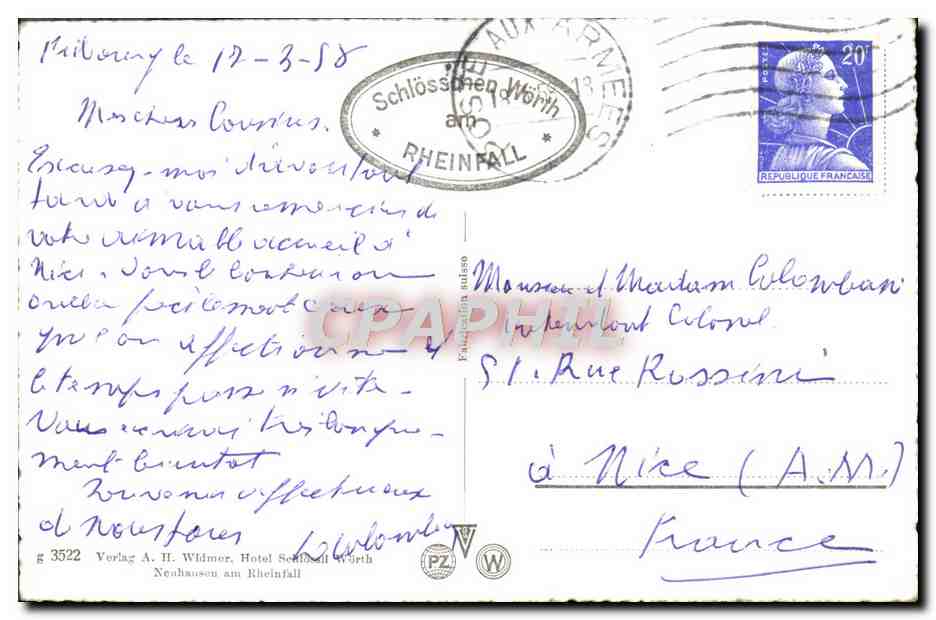 Fribourg le 12-3-58
Mes chers Cousins.
Excusez-moi d'avoir tant
tardé à vous remercier de
votre aimable accueil à
Nice.
oublie facilement ceux
que l'on affectionne et
le temps passe si vite.
Vous
ment bientôt
Souvenirs affectueux
de nous tous
Colomban
g 3522 Verlag A. H. Widmer, Hotel Schlössli Wörth
Neuhausen am Rheinfall
Schlösschen Wörth
am
RHEINFALL
POSTE AUX ARMEES
POSTES 20F
REPUBLIQUE FRANCAISE
Fabrication suisse
CPAPHIL
PZ W
Monsieur et Madame Colomban
Colonel
51. Rue Rossini
à Nice (A.M.)
France